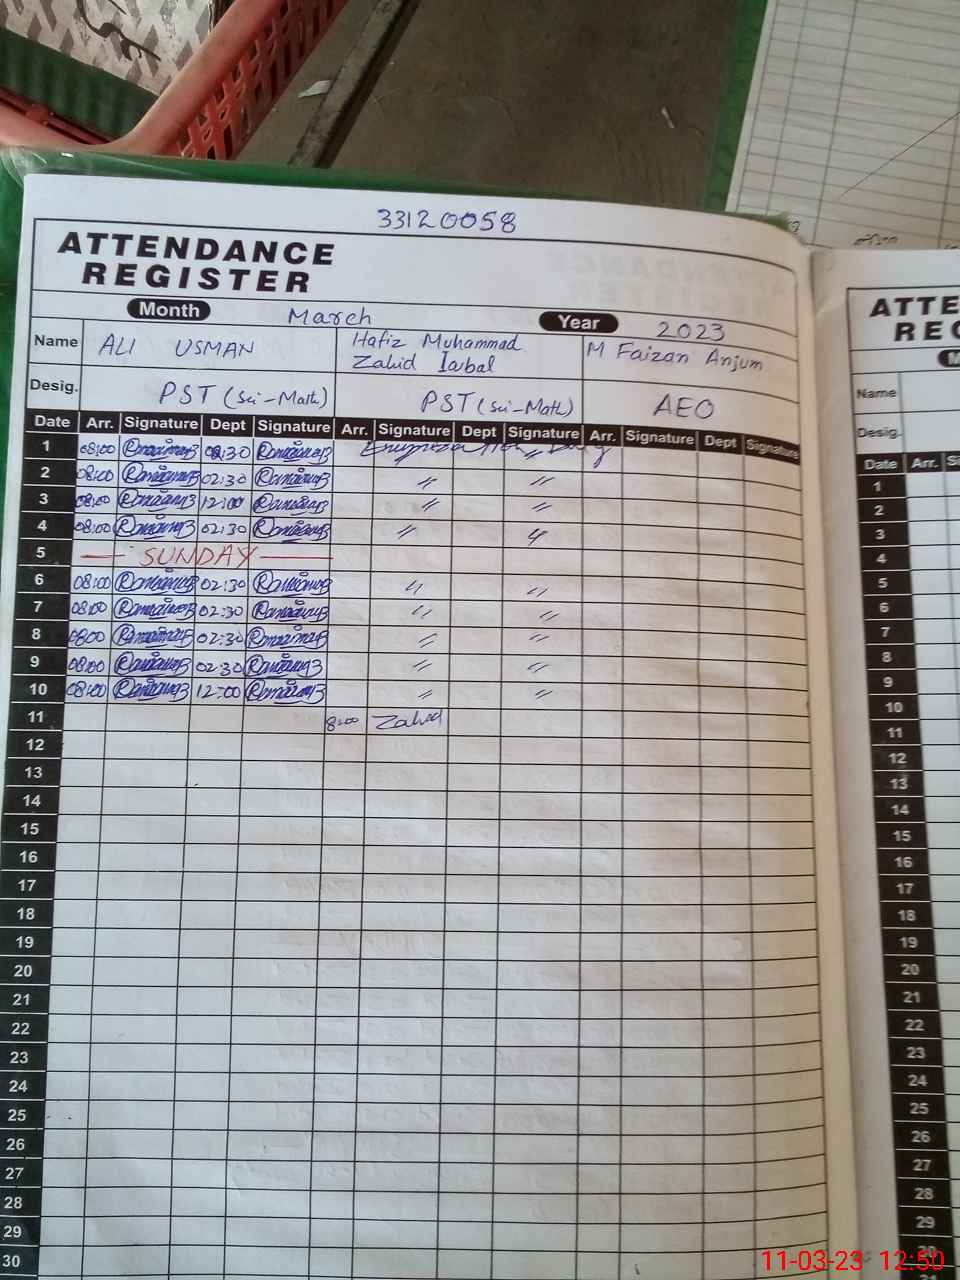 33120058
ATTENDANCE
REGISTER
Month March Year 2023
Name ALI USMAN Hafiz Muhammad Zahid Iqbal M Faizan Anjum
Desig. PST (Sci-Math) PST (Sci-Math) AEO
Date Arr. Signature Dept Signature Arr. Signature Dept Signature Arr. Signature Dept Signature
1 08:00 02:30 Duty
2 08:00 02:30 〃 〃
3 08:00 12:00 〃 〃
4 08:00 02:30 〃 〃
5 — SUNDAY —
6 08:00 02:30 〃 〃
7 08:00 02:30 〃 〃
8 08:00 02:30 〃 〃
9 08:00 02:30 〃 〃
10 08:00 12:00 〃 〃
11 8:00 Zahid
12
13
14
15
16
17
18
19
20
21
22
23
24
25
26
27
28
29
30
ATTE
REG
M
Name
Desig.
Date Arr. Si
1
2
3
4
5
6
7
8
9
10
11
12
13
14
15
16
17
18
19
20
21
22
23
24
25
26
27
28
29
30
11-03-23 12:50